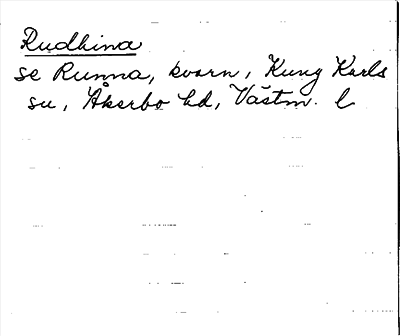 Rudhina
se Runna, kvarn, Kung Karls
su, Åkerbo hd, Västm. l